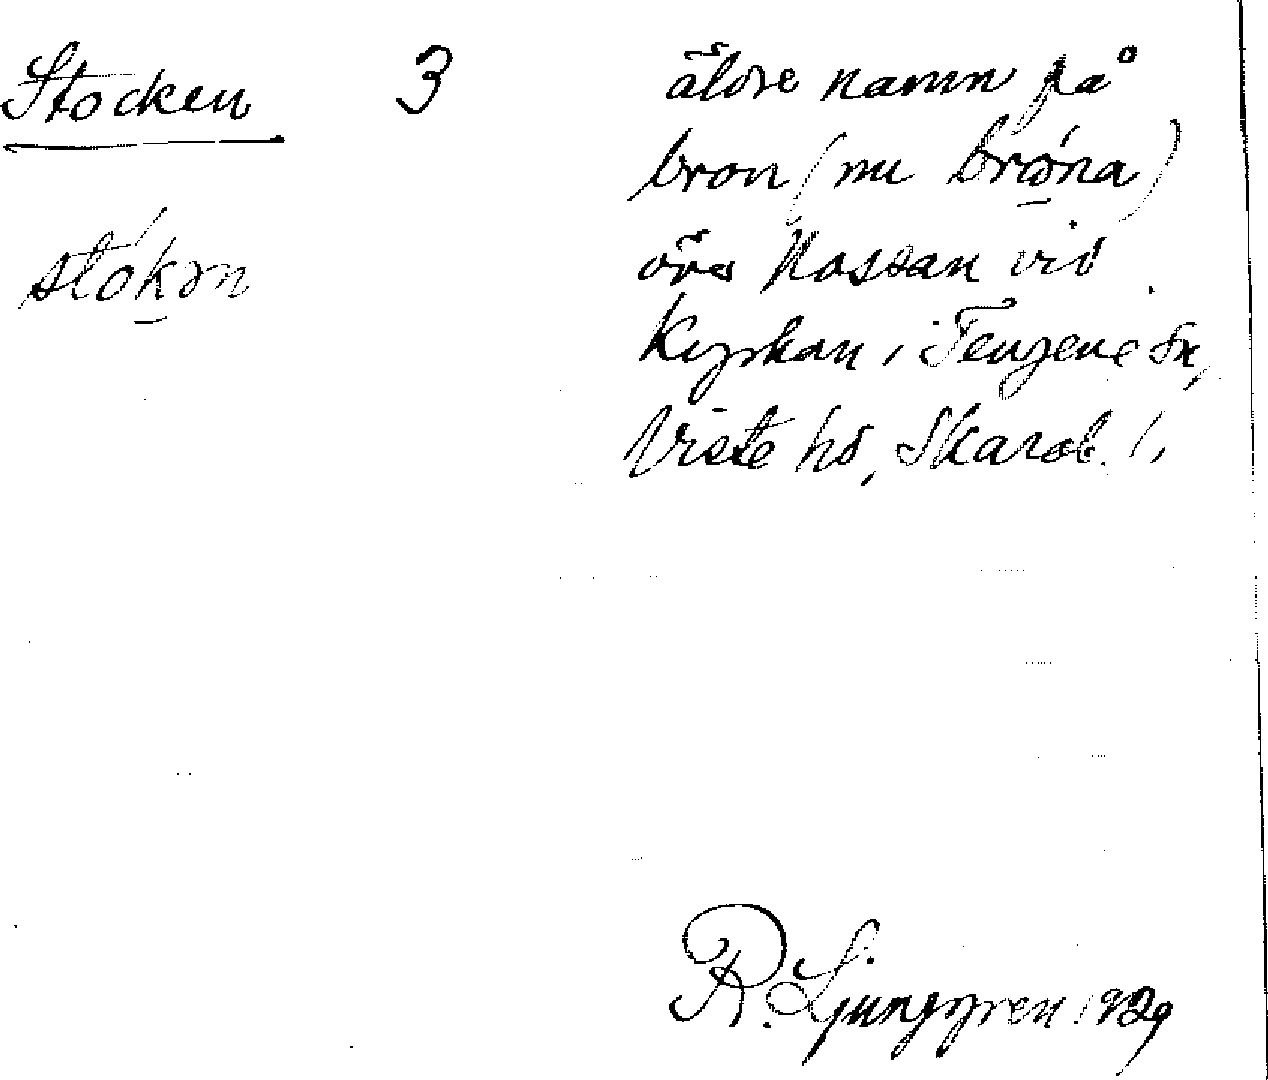 Stocken 3 äldre namn på
bron (nu bróna)
stókən
över Nossan vid
kyrkan i Tengene sn,
Viste hd, Skarab. l.
R. Ljunggren 1929